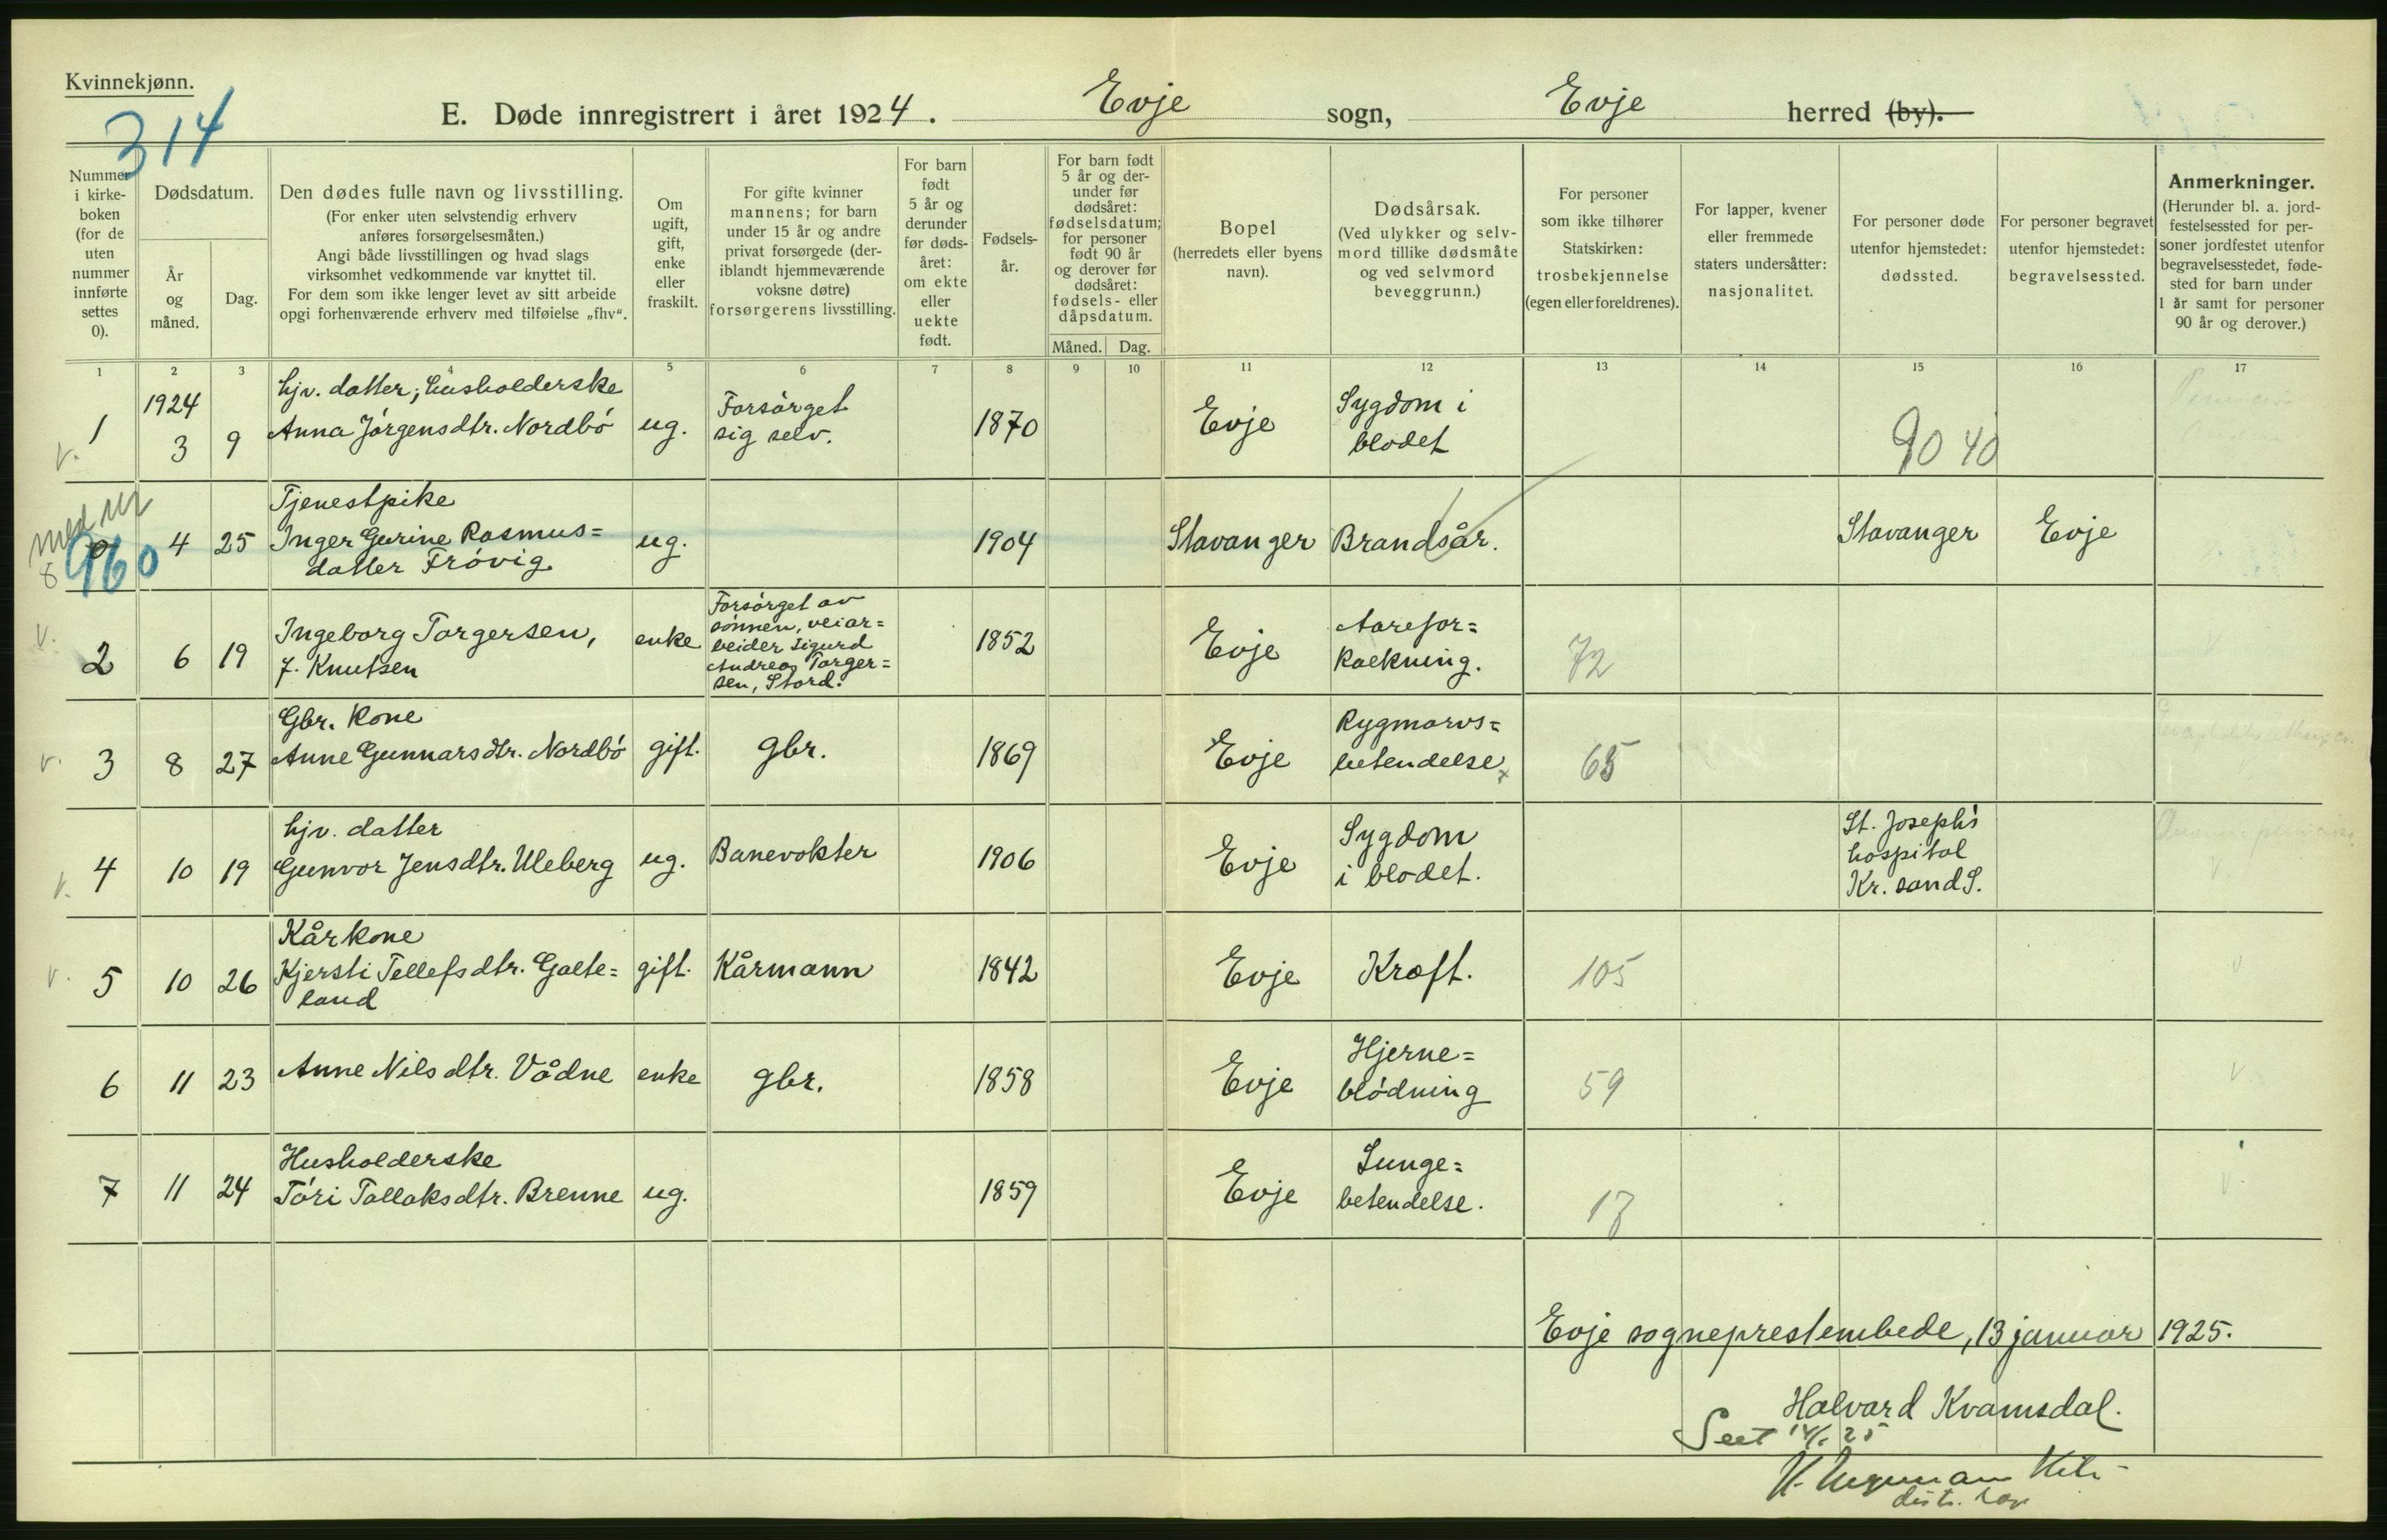 Kvinnekjønn.
314
E. Døde innregistrert i året 1924. Evje sogn, Evje herred (by).
Nummer
i kirke-
boken
(for de
uten
nummer
innførte
settes
0).
Dødsdatum.
År
og
måned.
Dag.
Den dødes fulle navn og livsstilling.
(For enker uten selvstendig erhverv
anføres forsørgelsesmåten.)
Angi både livsstillingen og hvad slags
virksomhet vedkommende var knyttet til.
For dem som ikke lenger levet av sitt arbeide
opgi forhenværende erhverv med tilføielse „fhv“.
Om
ugift,
gift,
enke
eller
fraskilt.
For gifte kvinner
mannens; for barn
under 15 år og andre
privat forsørgede (der-
iblandt hjemmeværende
voksne døtre)
forsørgerens livsstilling.
For barn
født
5 år og
derunder
før døds-
året:
om ekte
eller
uekte
født.
Fødsels-
år.
For barn født
5 år og der-
under før
dødsåret:
fødselsdatum;
for personer
født 90 år
og derover før
dødsåret:
fødsels- eller
dåpsdatum.
Måned. Dag.
Bopel
(herredets eller byens
navn).
Dødsårsak.
(Ved ulykker og selv-
mord tillike dødsmåte
og ved selvmord
beveggrunn.)
For personer
som ikke tilhører
Statskirken:
trosbekjennelse
(egen eller foreldrenes).
For lapper, kvener
eller fremmede
staters undersåtter:
nasjonalitet.
For personer døde
utenfor hjemstedet:
dødssted.
For personer begravet
utenfor hjemstedet:
begravelsessted.
Anmerkninger.
(Herunder bl. a. jord-
festelsessted for per-
soner jordfestet utenfor
begravelsesstedet, føde-
sted for barn under
1 år samt for personer
90 år og derover.)
1 2 3 4 5 6 7 8 9 10 11 12 13 14 15 16 17
v.
1
1924
3
9
hjv. datter; husholderske
Anna Jórgensdtr. Nordbó
ug.
Forsórget
sig selv.
1870
Evje
Sygdom i
blodet
90 40
960
8
4
25
Tjenestpike
Inger Gurine Rasmus=
datter Fróvig
ug.
1904
Stavanger
Brandsår.
Stavanger
Evje
v.
2
6
19
Ingeborg Torgersen,
f. Knutsen
enke
Forsórget av
sónnen, veiar=
beider Sigurd
Andreas Torger=
sen, Stord.
1852
Evje
Aarefor=
kalkning.
72
v.
3
8
27
Gbr. kone
Anne Gunnarsdtr. Nordbó
gift.
gbr.
1869
Evje
Rygmarvs=
betendelse
65
v.
4
10
19
hjv. datter
Gunvor Jensdtr. Uleberg
ug.
Banevokter
1906
Evje
Sygdom
i blodet.
St. Joseph's
hospital
Kr. sand S.
v.
5
10
26
Kårkone
Kjersti Tellefsdtr. Galte=
land
gift.
Kårmann
1842
Evje
Kræft.
105
6
11
23
Anne Nilsdtr. Vådne
enke
gbr.
1858
Evje
Hjerne=
blódning
59
7
11
24
Husholderske
Tóri Tallaksdtr. Brenne
ug.
1859
Evje
Lunge=
betendelse.
17
Evje sogneprestembede, 13 januar 1925.
Halvard Kvamsdal.
Seet